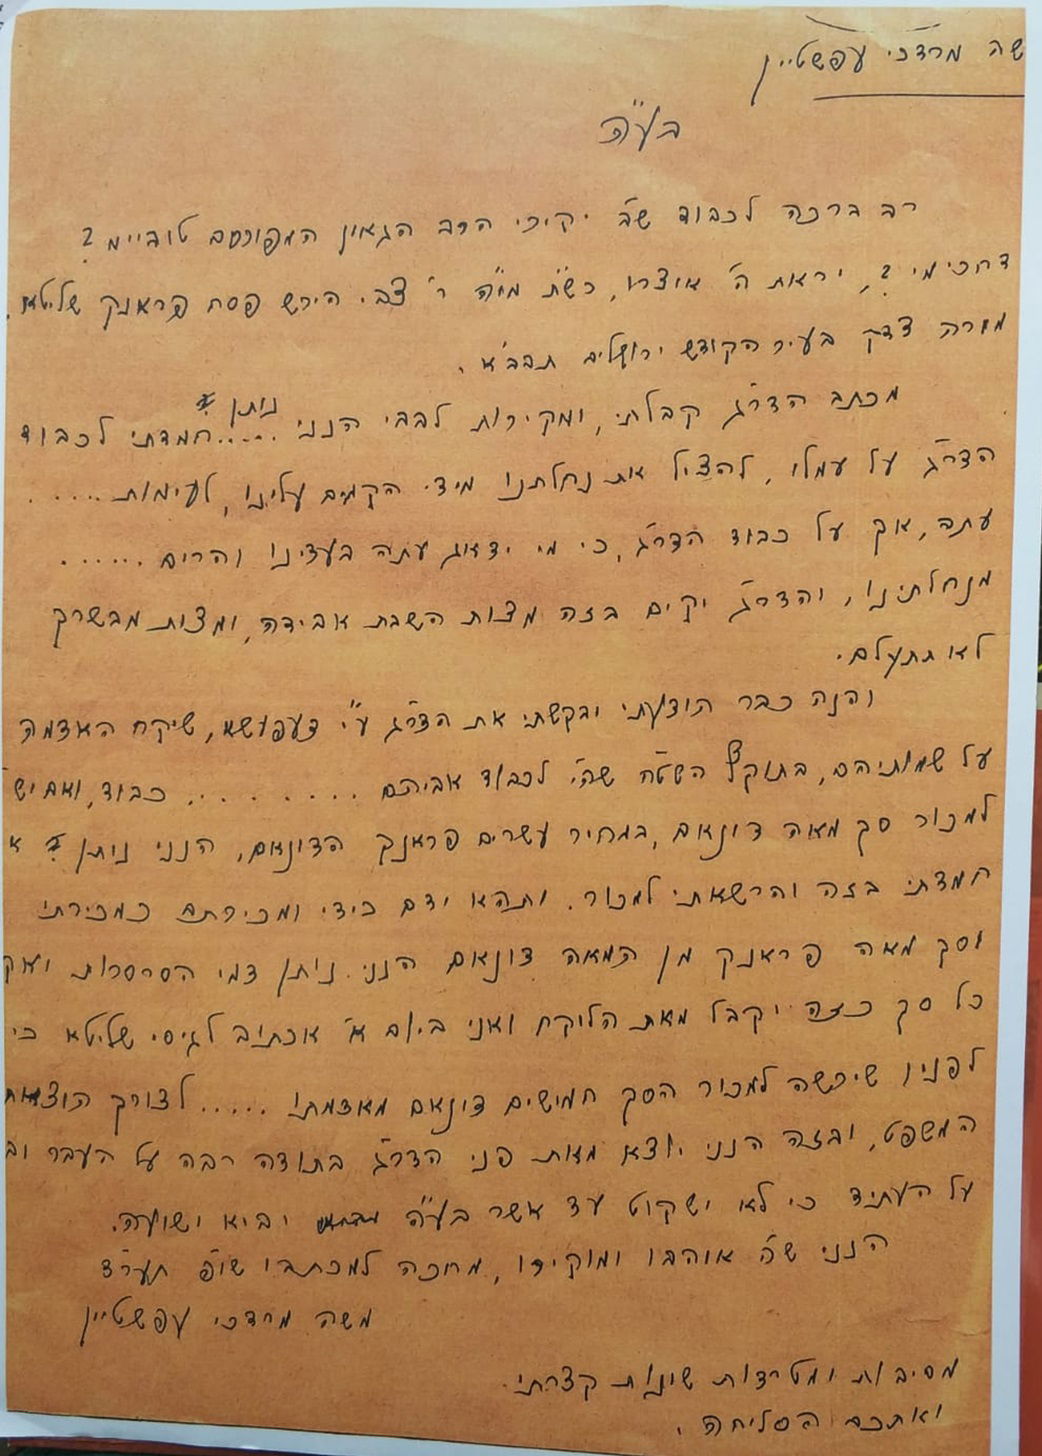 שה מרדכי עפשטיין
בע"ה
רב ברכה לכבוד ש"ב יקירי הרב הגאון המפורסם טוביימ?
דחכימי?, יראת ה' אוצרו, כש"ת מו"ה ר' צבי הירש פסח פראנק שליט"א,
מורה צדק בעיר הקודש ירושלים תבב"א.
מכתב הדר"ג קבלתי, ומקירות לבבי הנני ..... חמדתי לכבוד
נותן?
הדר"ג על עמלו, להציל את נחלתנו מידי הקמים עלינו, לעימות .....
עתה, אך על כבוד הדר"ג, כי מי ידאוג עתה בעדינו והרים ......
מנחלתינו, והדר"ג יקיים בזה מצות השבת אבידה, ומצות מבשרך
לא תתעלם.
והנה כבר הוצעתי ובקשתי את הדר"ג ע"י, שיקח האדמה
על שמותיהם, בתוקף השטח שהי' לכבוד אביהם ........ כבוד, ואם יש
למכור סך מאה דונאם, במחיר עשרים פראנק הדונאם, הנני ניתן? א
חמדתי בזה והרשאתי למכור. ותהא ידם כידי ומכירתם כמכירתי
וסך מאה פראנק מן המאה דונאם הנני נותן דמי הסרסרות ואך
כל סך כזה יקבל מאת הלוקח ואני ביום א' אכתוב לגיסי שליט"א כי
לפניו שירשה למכור הסך חמישים דונאם מאדמתו ..... לצורך הוצאות
המשפט, ובזה הנני יוצא מאת פני הדר"ג בתודה רבה על העבר וב
על העתיד כי לא ישקוט עד אשר בע"ה יביא ישועה.
הנני ש"ב אוהבו ומוקירו, מחכה למכתבו שו"פ תער"ד
משה מרדכי עפשטיין
מסיבות ומטרדות שונות קצרתי.
ואתכם הסליחה.